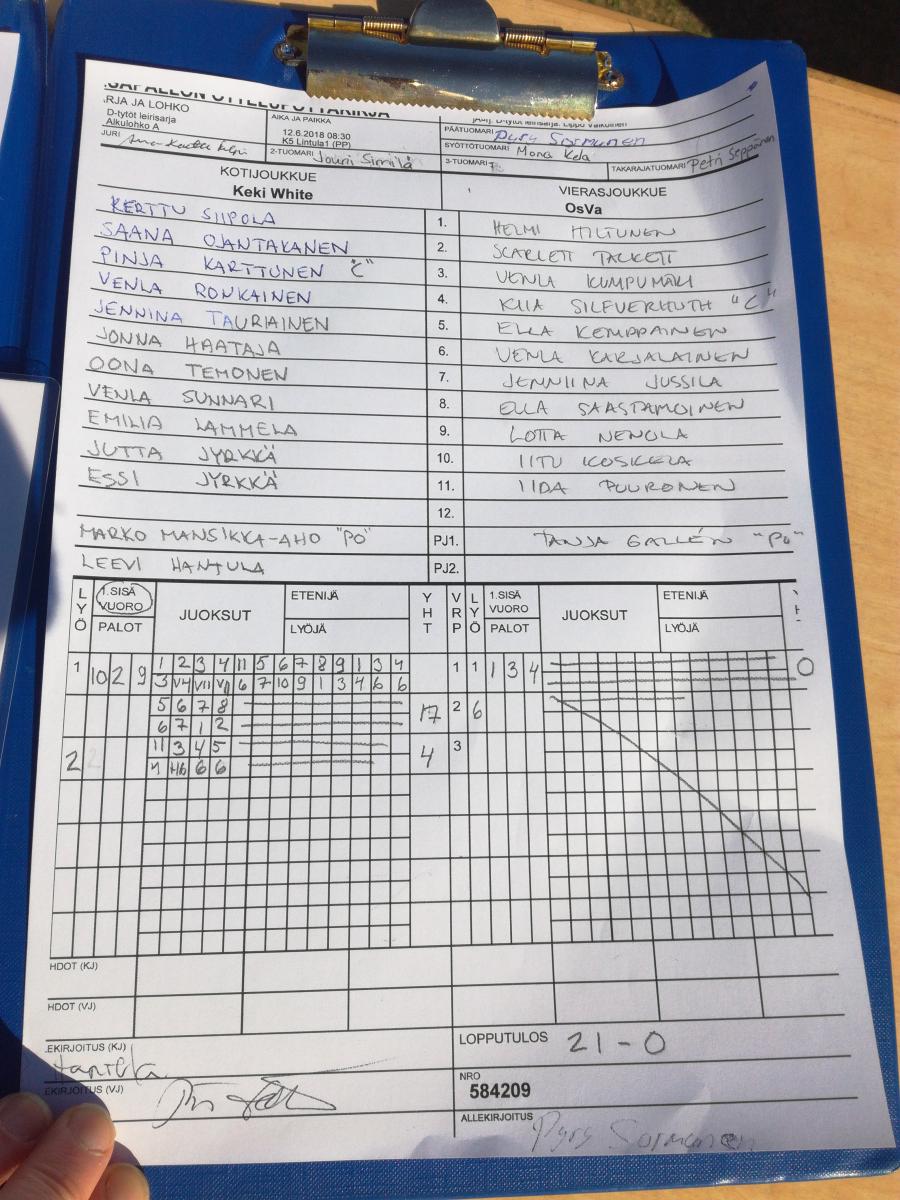 RJA JA LOHKO
D-tytöt leirisarja
Alkulohko A
AIKA JA PAIKKA
12.6.2018 08:30
K5 Lintula1 (PP)
D-tytöt leirisarja, Lippo Valkoinen
JURI
2-TUOMARI Jouni
PÄÄTUOMARI Pyry Sormunen
SYÖTTÖTUOMARI Mona Kela
3-TUOMARI
TAKARAJATUOMARI Petri Seppänen
KOTIJOUKKUE VIERASJOUKKUE
Keki White OsVa
KERTTU SIIPOLA 1. HELMI HILTUNEN
SAANA OJANTAKANEN 2. SCARLETT TACKETT
PINJA KARTTUNEN "C" 3. VENLA KUMPUMÄKI
VENLA RONKAINEN 4. KIIA SILFVERHUTH "C"
JENNINA TAURIAINEN 5. ELLA KEMPPAINEN
JONNA HAATAJA 6. VENLA KARJALAINEN
OONA TEMONEN 7. JENNIINA JUSSILA
VENLA SUNNARI 8. ELLA SAASTAMOINEN
EMILIA LAMMELA 9. LOTTA NENOLA
JUTTA JYRKKÄ 10. IITU KOSKELA
ESSI JYRKKÄ 11. IIDA PUURONEN
12.
MARKO MANSIKKA-AHO "PÖ" PJ1. TANJA GALLÉN "PÖ"
LEEVI HANTULA PJ2.
LYÖ 1.SISÄ VUORO PALOT JUOKSUT ETENIJÄ LYÖJÄ YHT VRP LYÖ 1.SISÄ VUORO PALOT JUOKSUT ETENIJÄ LYÖJÄ
1 10 2 9 1 2 3 4 11 5 6 7 8 9 1 3 4 1 1 1 3 4 0
3 V4 VII 6 7 10 9 1 3 4 6 6
5 6 7 8 17 2 6
6 7 1 2
2 11 3 4 5 4 3
6 6
HDOT (KJ)
HDOT (VJ)
EKIRJOITUS (KJ) Hantula
LOPPUTULOS 21-0
EKIRJOITUS (VJ)
NRO
584209
ALLEKIRJOITUS Pyry Sormunen